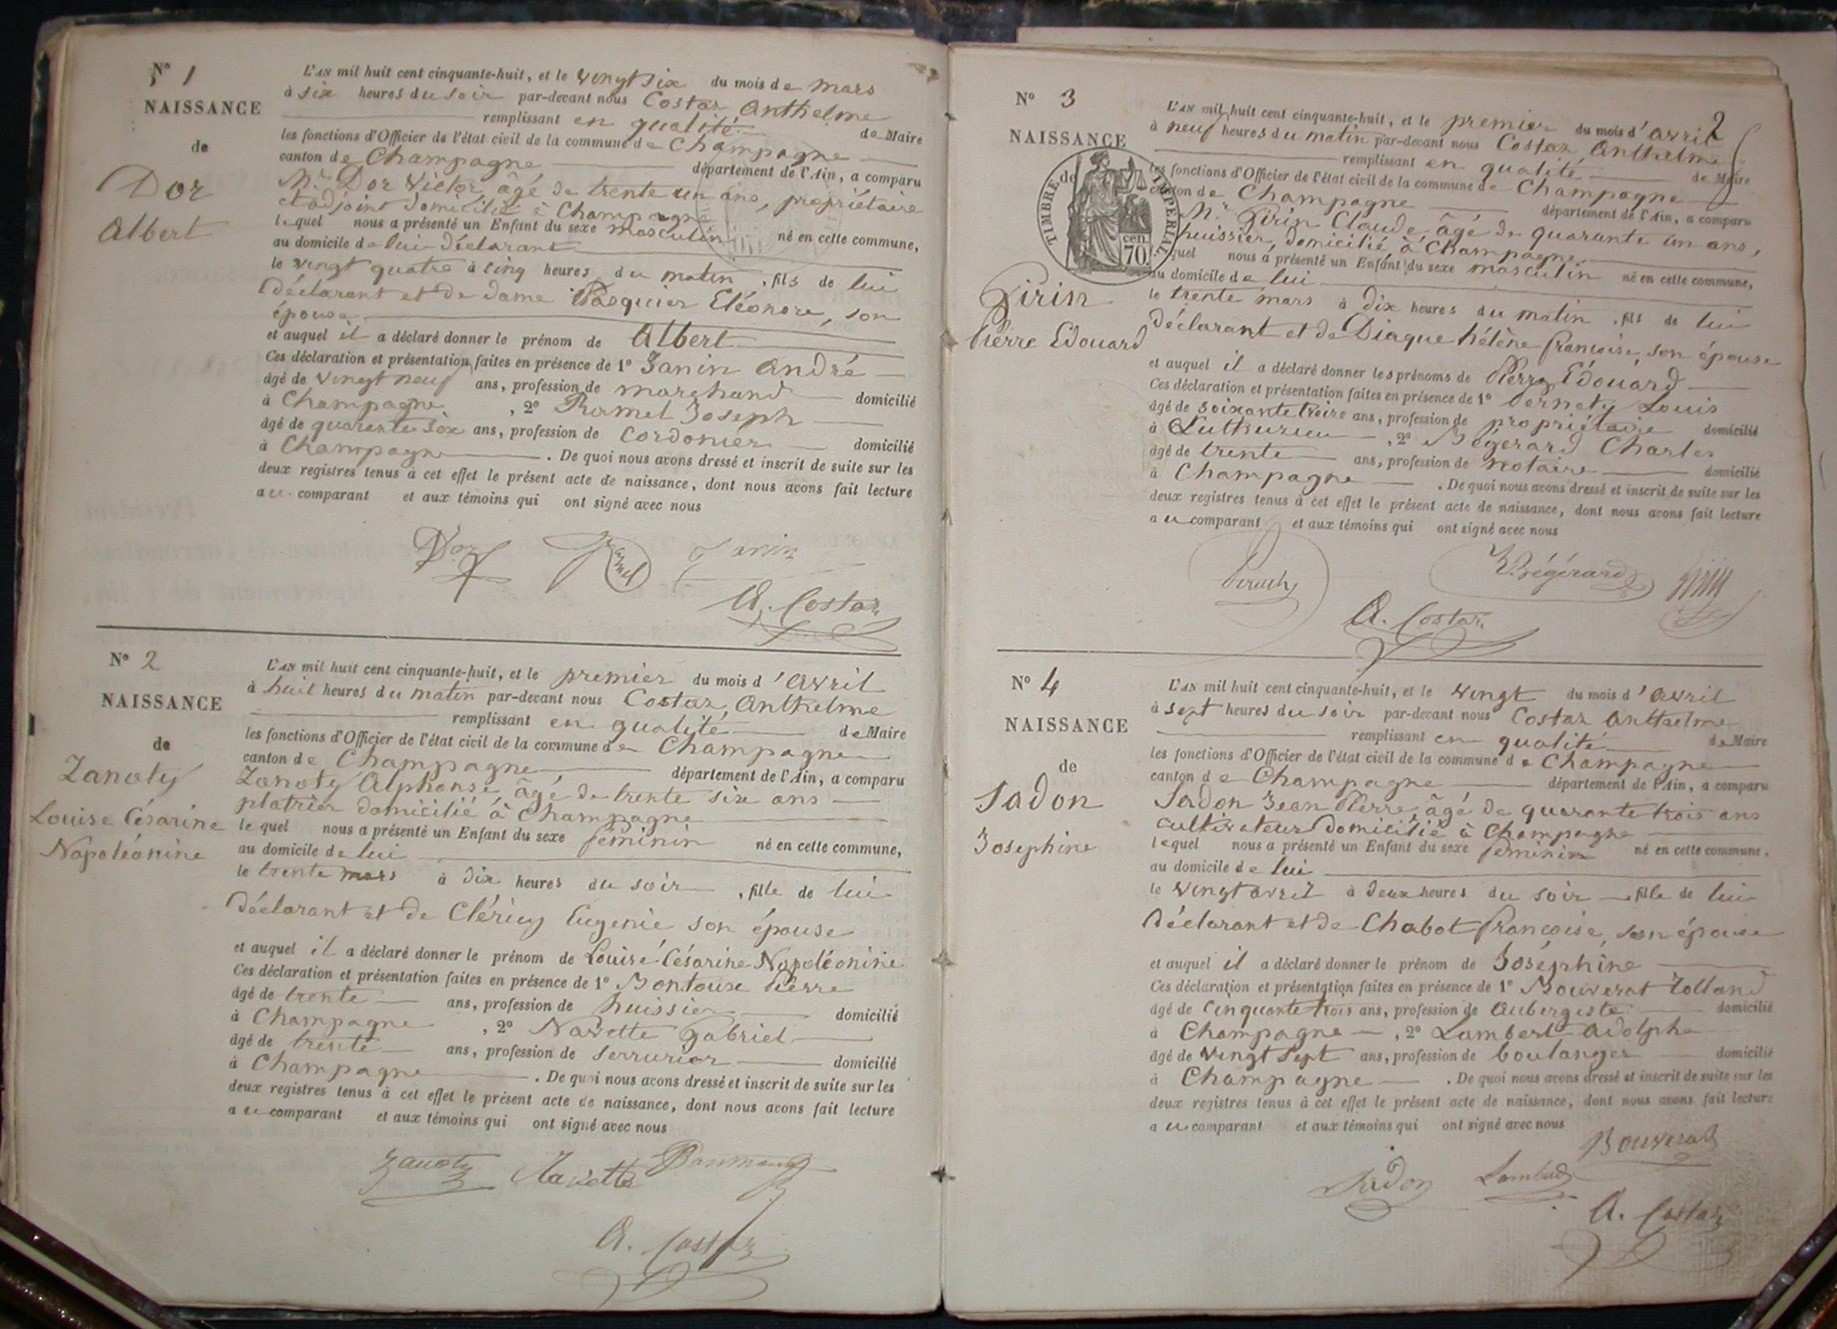 N° 1
NAISSANCE
de
Dor
Albert
L'AN mil huit cent cinquante-huit, et le vingt six du mois de mars
à six heures du soir par-devant nous Costaz Anthelme
remplissant en qualité de Maire
les fonctions d'Officier de l'état civil de la commune de Champagne
canton de Champagne département de l'Ain, a comparu
Mr Dor Victor, âgé de trente un ans, propriétaire
et adjoint domicilié à Champagne
lequel nous a présenté un Enfant du sexe masculin né en cette commune,
au domicile de lui déclarant
le vingt quatre à cinq heures du matin, fils de lui
déclarant et de dame Pasquier Eléonore, son
épouse
et auquel il a déclaré donner le prénom de Albert
Ces déclaration et présentation faites en présence de 1° Janin André
âgé de vingt neuf ans, profession de marchand domicilié
à Champagne, 2° Ramel Joseph
âgé de quarente six ans, profession de cordonier domicilié
à Champagne. De quoi nous avons dressé et inscrit de suite sur les
deux registres tenus à cet effet le présent acte de naissance, dont nous avons fait lecture
au comparant et aux témoins qui ont signé avec nous
Dor Ramel Janin
A. Costaz
N° 2
NAISSANCE
de
Zanoty
Louise Césarine
Napoléonine
L'AN mil huit cent cinquante-huit, et le premier du mois d'avril
à huit heures du matin par-devant nous Costaz Anthelme
remplissant en qualité de Maire
les fonctions d'Officier de l'état civil de la commune de Champagne
canton de Champagne département de l'Ain, a comparu
Zanoty Alphonse, âgé de trente six ans
platrier domicilié à Champagne
lequel nous a présenté un Enfant du sexe féminin né en cette commune,
au domicile de lui
le trente mars à dix heures du soir, fille de lui
déclarant et de Cléricy Eugenie son épouse
et auquel il a déclaré donner le prénom de Louise Césarine Napoléonine
Ces déclaration et présentation faites en présence de 1° Montoux Pierre
âgé de trente ans, profession de huissier domicilié
à Champagne, 2° Navette Gabriel
âgé de trente ans, profession de serrurier domicilié
à Champagne. De quoi nous avons dressé et inscrit de suite sur les
deux registres tenus à cet effet le présent acte de naissance, dont nous avons fait lecture
au comparant et aux témoins qui ont signé avec nous
Zanoty Navette
A. Costaz
2
N° 3
NAISSANCE
de
TIMBRE IMPERIAL
cen. 70
Pirin
Pierre Edouard
L'AN mil huit cent cinquante-huit, et le premier du mois d'avril
à neuf heures du matin par-devant nous Costaz Anthelme
remplissant en qualité de Maire
les fonctions d'Officier de l'état civil de la commune de Champagne
canton de Champagne département de l'Ain, a comparu
Mr Pirin Claude, âgé de quarante un ans,
huissier, domicilié à Champagne
lequel nous a présenté un Enfant du sexe masculin né en cette commune,
au domicile de lui
le trente mars à dix heures du matin, fils de lui
déclarant et de Diaque hélène françoise, son épouse
et auquel il a déclaré donner les prénoms de Pierre Edouard
Ces déclaration et présentation faites en présence de 1° Louis
âgé de soixante treize ans, profession de propriétaire domicilié
à Luthuzieu, 2° Bégérard Charles
âgé de trente ans, profession de notaire domicilié
à Champagne. De quoi nous avons dressé et inscrit de suite sur les
deux registres tenus à cet effet le présent acte de naissance, dont nous avons fait lecture
au comparant et aux témoins qui ont signé avec nous
A. Costaz
N° 4
NAISSANCE
de
Jadon
Josephine
L'AN mil huit cent cinquante-huit, et le vingt du mois d'avril
à sept heures du soir par-devant nous Costaz Anthelme
remplissant en qualité de Maire
les fonctions d'Officier de l'état civil de la commune de Champagne
canton de Champagne département de l'Ain, a comparu
Jadon Jean Pierre, âgé de quarante trois ans
cultivateur domicilié à Champagne
lequel nous a présenté un Enfant du sexe féminin né en cette commune,
au domicile de lui
le vingt avril à deux heures du soir, fille de lui
déclarant et de Chabot françoise, son épouse
et auquel il a déclaré donner le prénom de Joséphine
Ces déclaration et présentation faites en présence de 1° Bouverat
âgé de cinquante trois ans, profession de aubergiste domicilié
à Champagne, 2° Lambert Adolphe
âgé de vingt sept ans, profession de boulanger domicilié
à Champagne. De quoi nous avons dressé et inscrit de suite sur les
deux registres tenus à cet effet le présent acte de naissance, dont nous avons fait lecture
au comparant et aux témoins qui ont signé avec nous
Bouverat
Jadon Lambert
A. Costaz